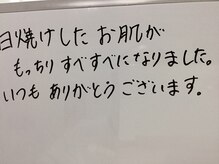 日焼けした お肌が
もっちり すべすべになりました。
いつも ありがとう ございます。